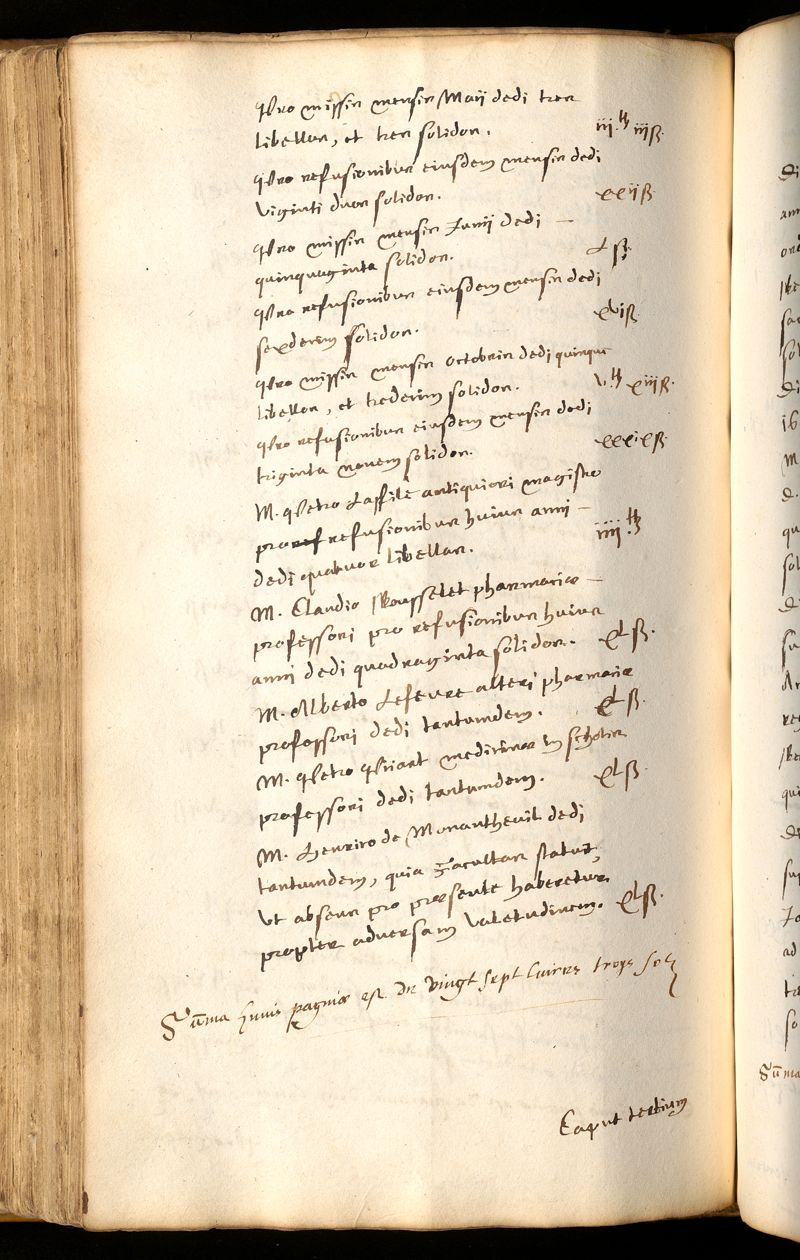 Pro missis mensis Maii dedi tres
libellas, et tres solidos. iii.lt iiiß.
Pro refusionibus eiusdem mensis dedi
viginti duos solidos. xxiiß.
Pro missis mensis Junii dedi —
quinquaginta solidos. L ß.
Pro refusionibus eiusdem mensis dedi
sexdecim solidos. xviß.
Pro missis mensis octobris dedi quinque
libellas, et tredecim solidos. v.lt xiiiß.
Pro refusionibus eiusdem mensis dedi
triginta novem solidos. xxxixß.
M. Petro Laffilé antiquiori magistro
pro refusionibus huius anni —
dedi quatuor libellas. iiii.lt
M. Claudio Rousselet pharmaciae —
professori pro refusionibus huius
anni dedi quadraginta solidos. xlß.
M. Alberto Lefeure alteri pharmaciae
professori dedi tantumdem. xlß.
M. Petro Piiart medicinae in scholis
professori dedi tantumdem. xlß.
M. Henrico de Monantheuil dedi
tantumdem, quia Facultas statuit,
ut absens pro praesente haberetur
propter adversam valetudinem. xlß.
Sūma huius paginae est de vingt sept livres troys solz
Caput tertium